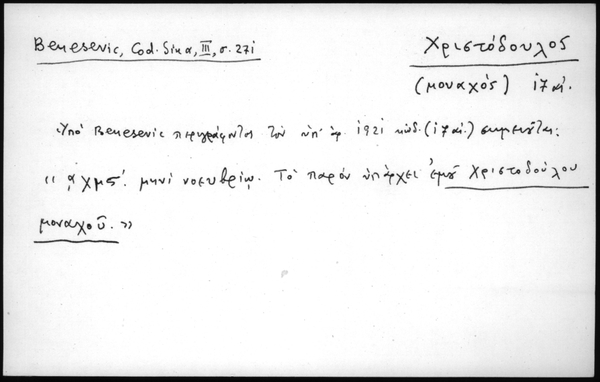 Benesevic, Cod. Sina, III, σ. 271
Χριστόδουλος
(μοναχός) 17 αἰ.
Ὑπὸ Benesevic περιγράφοντα τὸν ὑπ' ἀρ. 1921 κώδ. (17 αἰ.) σημειοῦται:
«͵αχμς΄. μηνὶ νοεμβρίῳ. Τὸ παρὸν ὑπάρχει ἐμοῦ Χριστοδούλου
μοναχοῦ.»